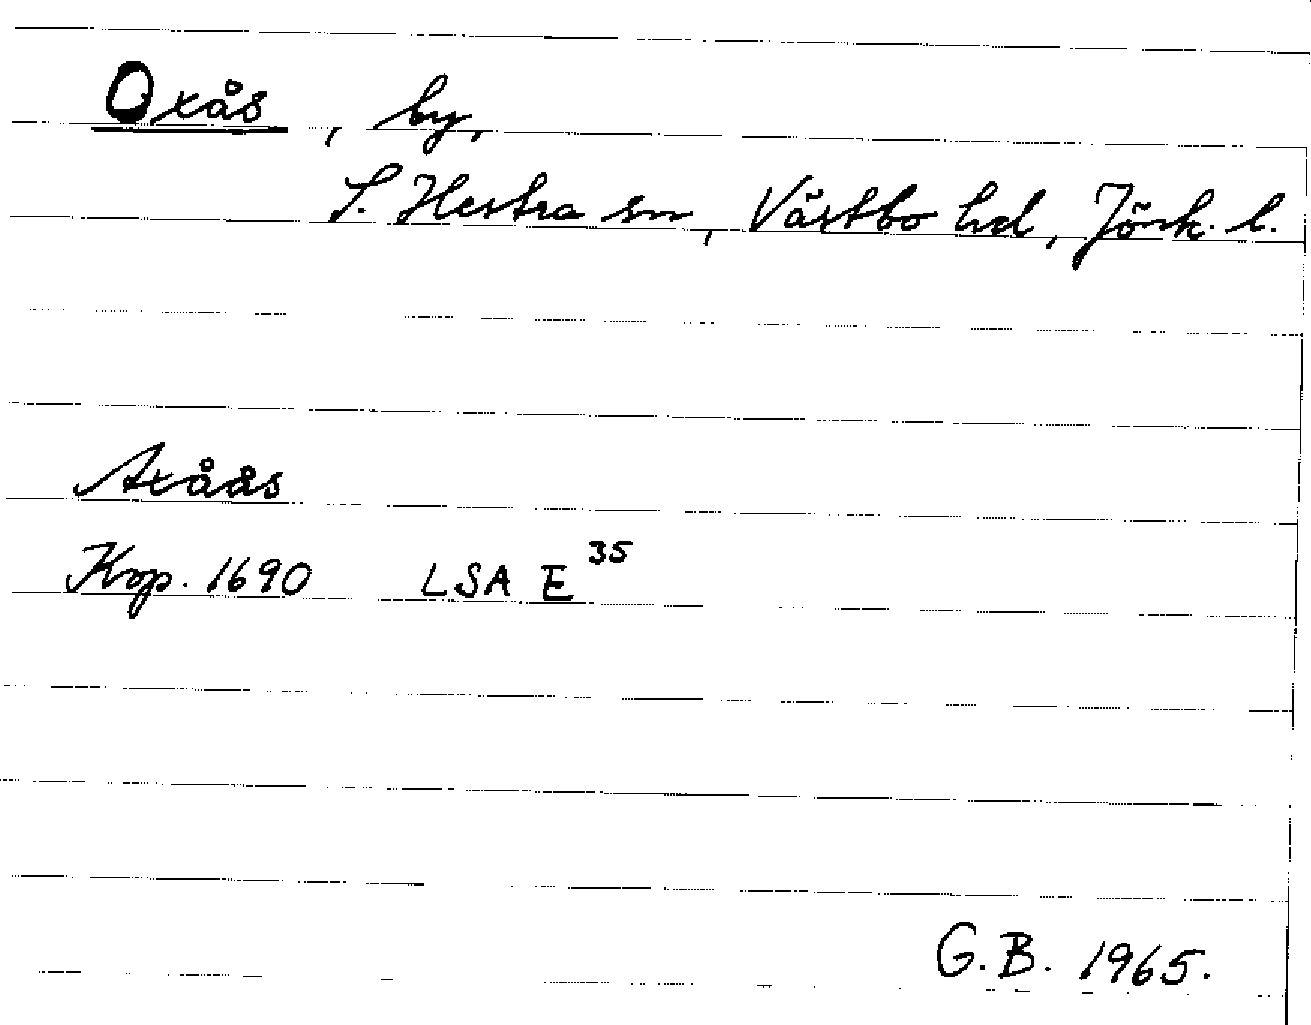 Oxås, by,
S. Hestra sn, Västbo hd, Jönk. l.
Axåås
Krp. 1690 LSA E 35
G.B. 1965.